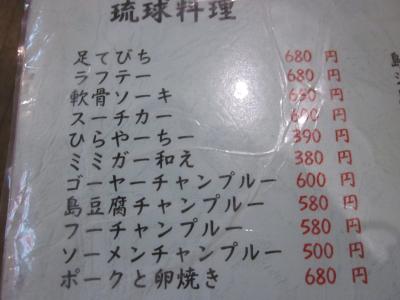 琉球料理
足てびち 680 円
ラフテー 680 円
軟骨ソーキ 630 円
スーチカー 600 円
ひらやーちー 390 円
ミミガー和え 380 円
ゴーヤーチャンプルー 600 円
島豆腐チャンプルー 580 円
フーチャンプルー 580 円
ソーメンチャンプルー 500 円
ポークと卵焼き 680 円